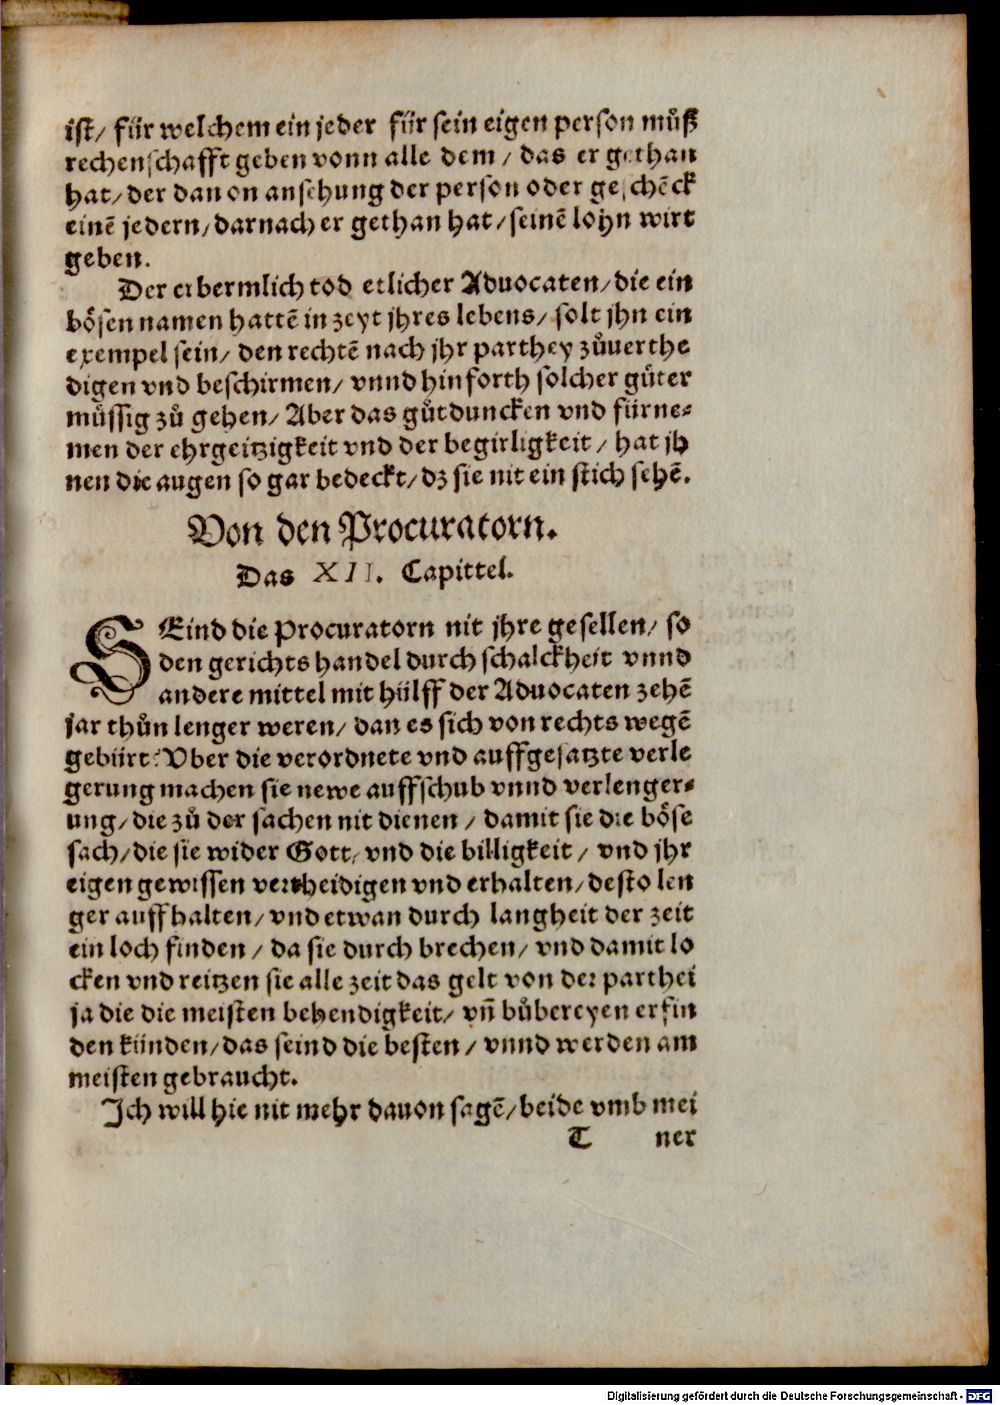 ist/ für welchem ein jeder für sein eigen person můß
rechenschafft geben vonn alle dem / das er gethan
hat/ der dauon ansehung der person oder geschēck
einē jedern/ darnach er gethan hat/ seinē lohn wirt
geben.
Der erbermlich tod etlicher Aduocaten/ die ein
bösen namen hattē in zeyt jhres lebens/ solt jhn ein
exempel sein/ den rechtē nach jhr parthey zůuerthe
digen vnd beschirmen/ vnnd hinforth solcher gůter
můssig zů gehen/ Aber das gůtduncken vnd fürne⸗
men der ehrgeitzigkeit vnd der begirligkeit / hat jh
nen die augen so gar bedeckt/ dz sie nit ein stich sehē.
Von den Procuratorn.
Das XII. Capittel.
SEind die Procuratorn nit jhre gesellen/ so
den gerichts handel durch schalckheit vnnd
andere mittel mit hülff der Aduocaten zehē
jar thůn lenger weren/ dan es sich von rechts wegē
gebürt: Vber die verordnete vnd auffgesatzte verle
gerung machen sie newe auffschub vnnd verlenger⸗
ung/ die zů der sachen nit dienen / damit sie die böse
sach/ die sie wider Gott/ vnd die billigkeit / vnd jhr
eigen gewissen vertheidigen vnd erhalten/ desto len
ger auffhalten/ vnd etwan durch langheit der zeit
ein loch finden / da sie durch brechen/ vnd damit lo
cken vnd reitzen sie alle zeit das gelt von der parthei
ja die die meisten behendigkeit/ vn̄ bůbereyen erfin
den künden/ das seind die besten / vnnd werden am
meisten gebraucht.
Ich will hie nit mehr dauon sagē/ beide vmb mei
T ner
Digitalisierung gefördert durch die Deutsche Forschungsgemeinschaft - DFG